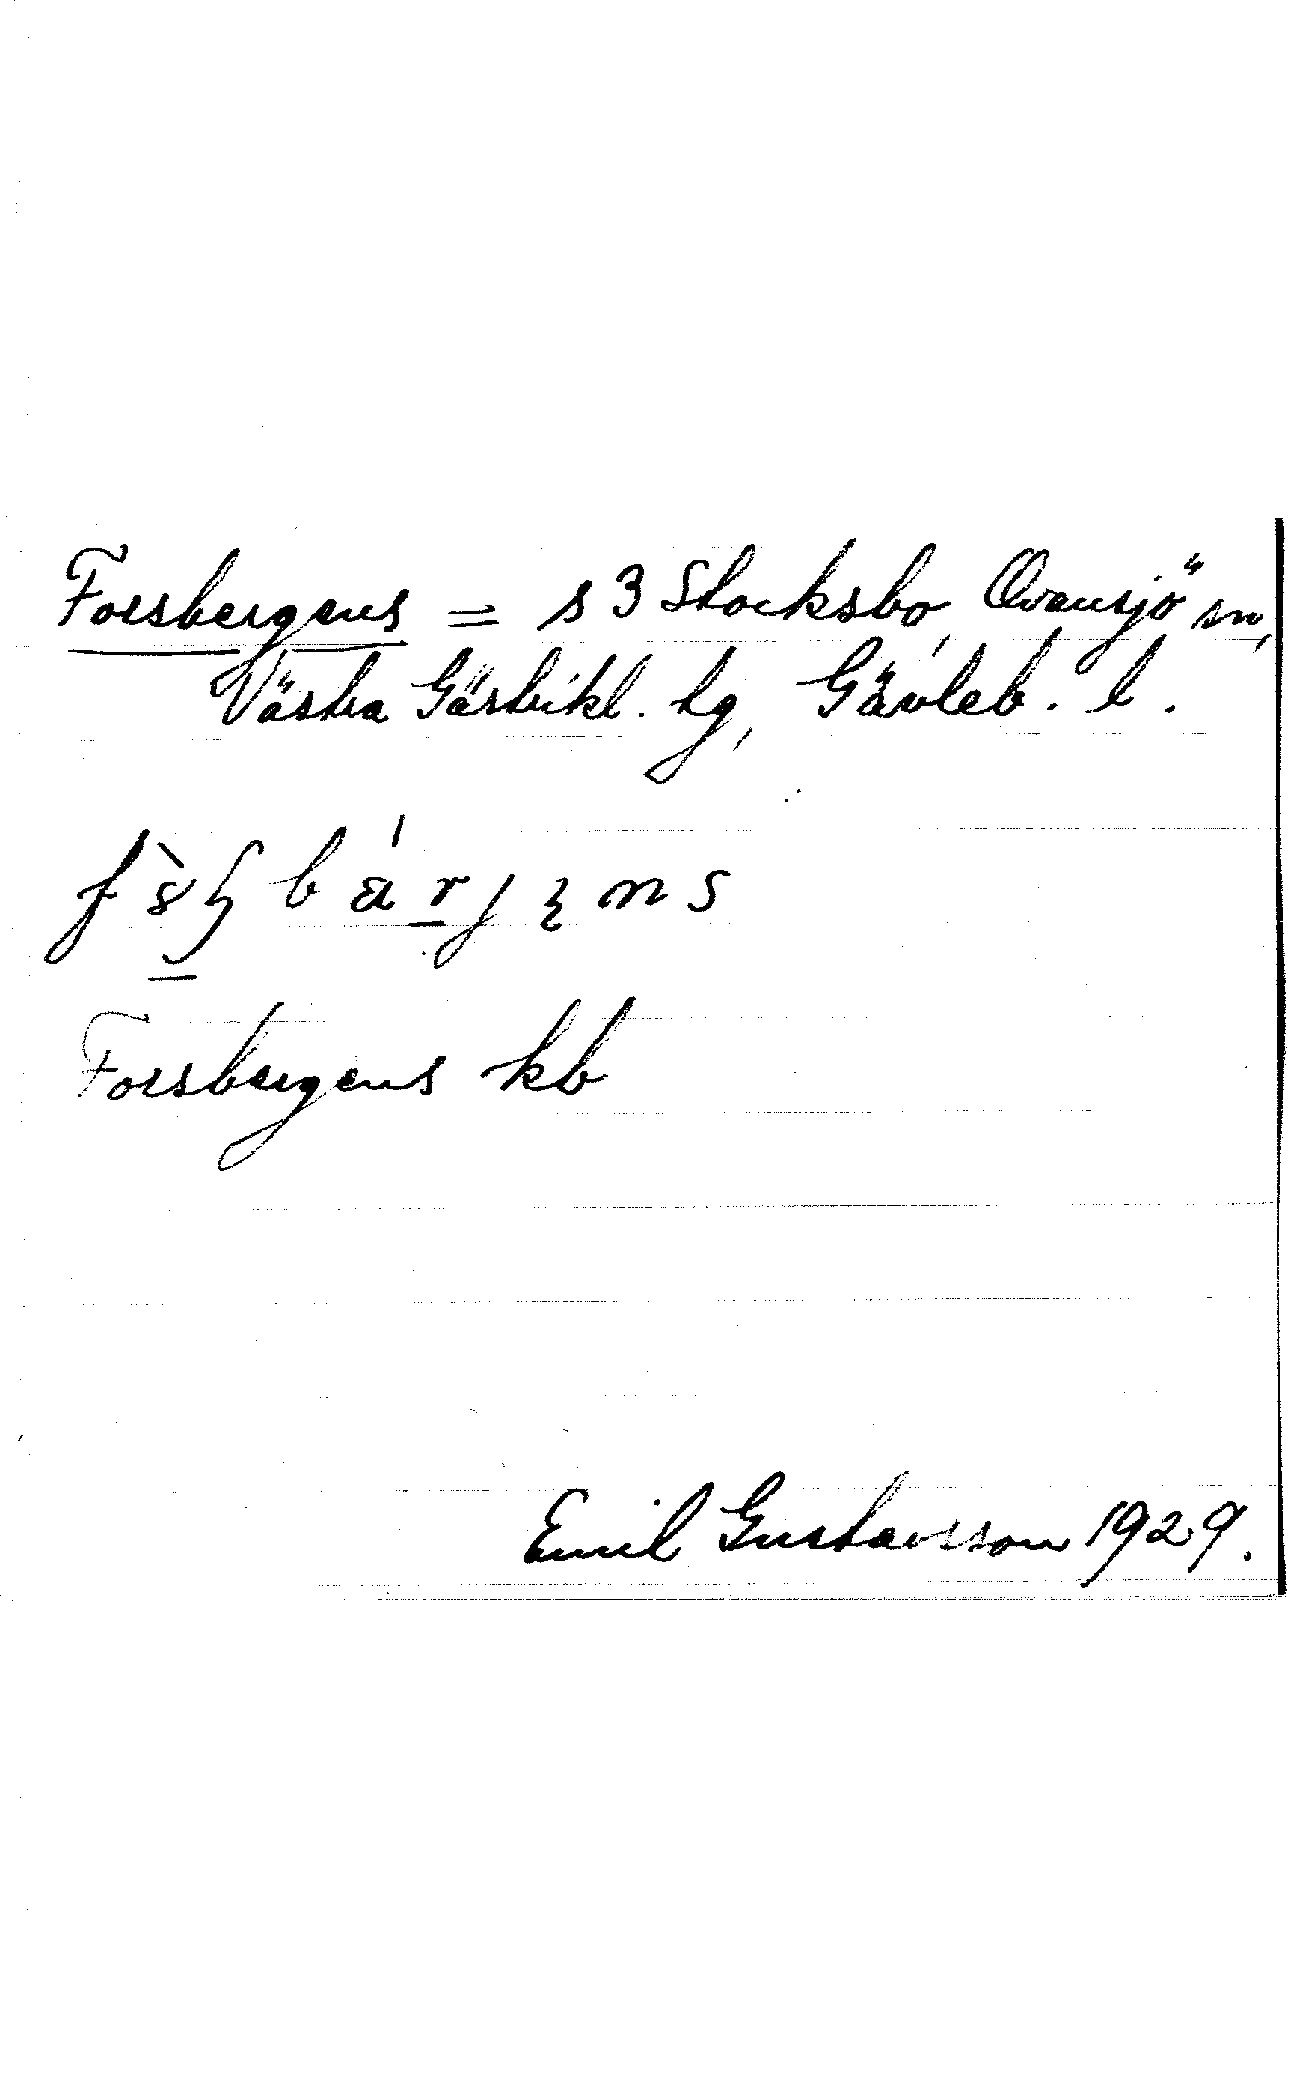 Forsbergens = s 3 Stocksbo, Ovansjö sn,
Västra Gästrikl. tg, Gävleb. l.
Forsbergens kb
Emil Gustavsson 1929.